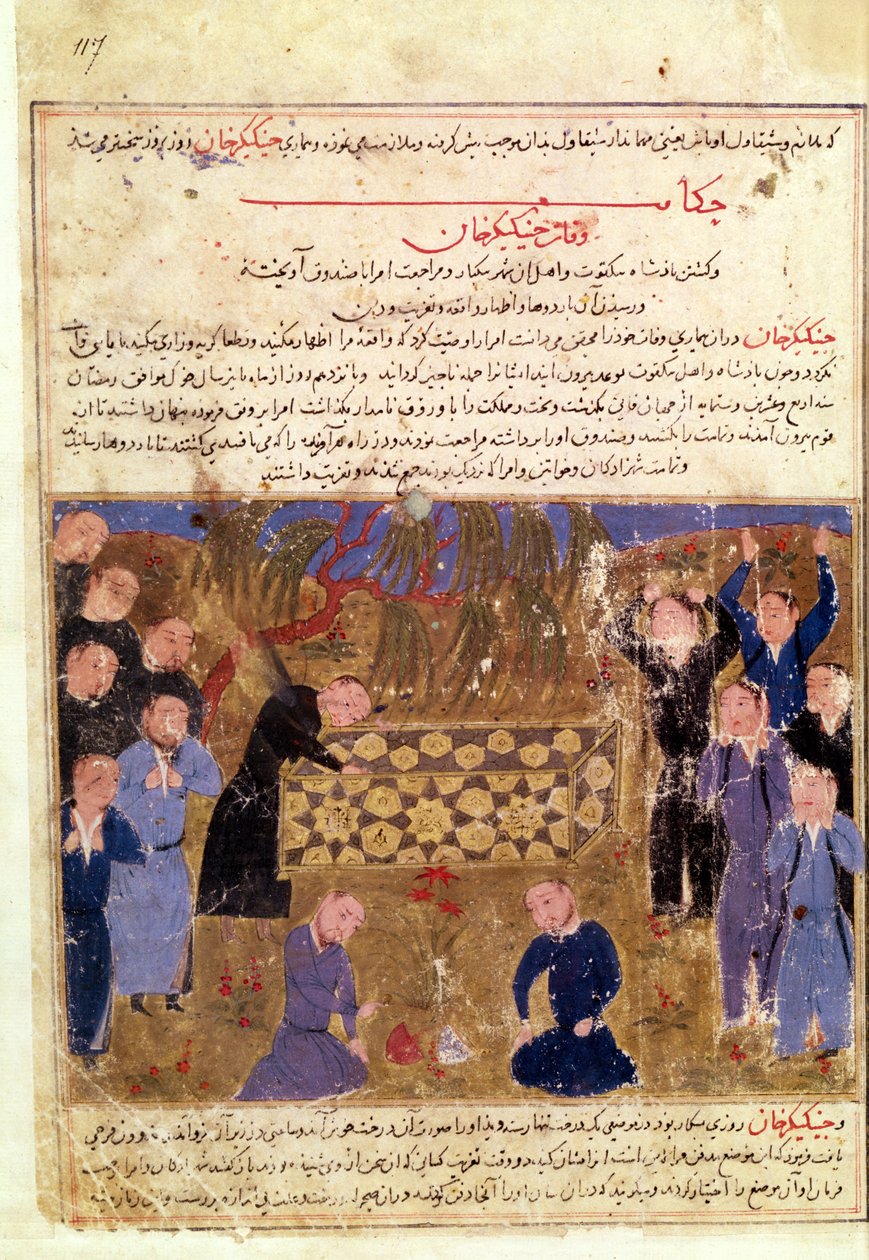 117
که ملازم و شیقاول او باش یعنی مهماندار شیقاول بدان موجب پیش گرفته و ملازمت می نموذ و بیماری جینکیکزخان روز بروز سختتر می شذ
حکایت
وفات جینکیکزخان
و کشتن پاذشاه تنکقوت و اهل آن شهر تمامت و مراجعت امرا با صندوق آویخته
و رسیذن آن باردوها و اظهار واقعه و تعزیت و دفن
جینکیکزخان در آن بیماری وفات خوذ را محقق می دانست امرا را وصیت کرد که واقعهٔ مرا اظهار مکنید و قطعا گریه و زاری مکنید تا یاغی واقف
نگردد و چون پاذشاه و اهل تنکقوت بوعده بیرون آیند ایشانرا جمله ناچیز گردانید و پانزدهم روز از ماه سال خوک موافق رمضان
سنه اربع و عشرین و ستمایه از جهان فانی بگذشت و تخت و مملکت را با وروق نامدار بگذاشت امرا بر وفق فرموده پنهان داشتند تا آن
قوم بیرون آمدند و تمامت را بکشتند و صندوق او را برداشته مراجعت نمودند و در راه هر آفریده را که می یافتند می کشتند تا باردوها رسانیدند
و تمامت شهزادکان و خواتین و امرا که نزدیک بودند جمع شذند و تعزیت داشتند
و جینکیکزخان روزی بشکار بود در موضعی یک درخت تنها رسته دید او را صورت آن درخت خوش آمد و ساعتی در زیر آن فرو آمد و روحی
یافت فرمود که این موضع مدفن مرا لایق است در وقت تعزیت کسانی که آن سخن از وی شنیذه بودند باز گفتند شهزادکان و امرا بموجب
فرمان او آن موضع را اختیار کردند و میکویند که در آن سال او را آنجا دفن کردند در آن صحرا درخت و علف بی اندازه برست